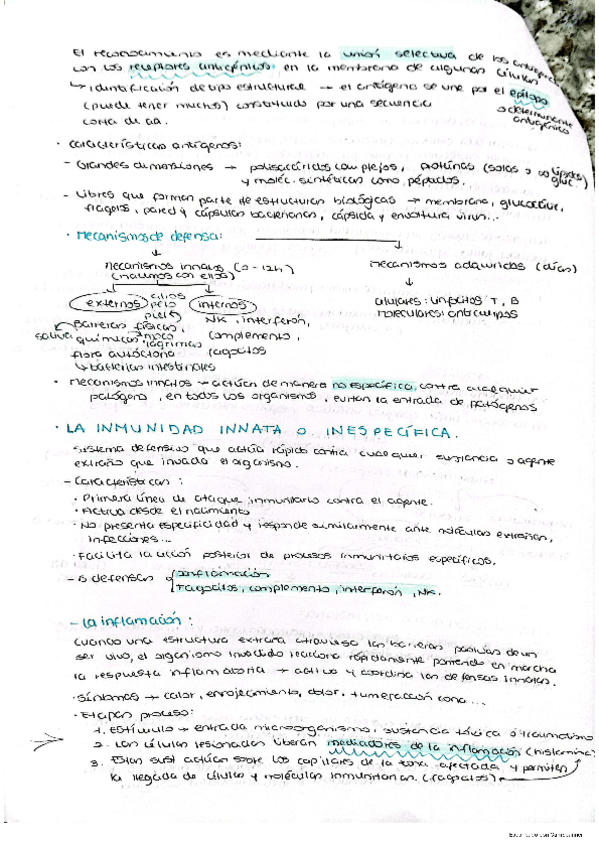 El reconocimiento es mediante la unión selectiva de los antígenos
con los receptores antigénicos en la membrana de algunas células
↳ identificación de tipo estructural → el antígeno se une por el epítopo
(puede tener muchos) constituido por una secuencia
corta de aa.
o determinante
antigénico
· Características antígenos:
- Grandes dimensiones → polisacáridos complejos, proteínas (solas o con lípidos
gluc.
y moléc. sintéticas como péptidos...
- Libres que forman parte de estructuras biológicas → membrana, glucocálix,
flagelos, pared y cápsulas bacterianas, cápsida y envoltura virus...
· Mecanismos de defensa:
mecanismos innatos (0-12h)
(nacemos con ellos)
mecanismos adquiridos (días)
externos
cilios
pelo
piel
internos
celulares: linfocitos T, B
moleculares: anticuerpos
Barreras físicas,
NK, interferón,
saliva
químicas
moco
lágrimas
complemento,
flora autóctona
fagocitos
↳ bacterias intestinales
· Mecanismos innatos → actúan de manera no específica, contra cualquier
patógeno, en todos los organismos, evitan la entrada de patógenos
· LA INMUNIDAD INNATA O INESPECÍFICA.
Sistema defensivo que actúa rápido contra cualquier sustancia o agente
extraño que invada el organismo.
- Características:
· Primera línea de ataque inmunitario contra el agente.
· Activa desde el nacimiento
· No presenta especificidad y responde similarmente ante moléculas extrañas,
infecciones...
· Facilita la acción posterior de procesos inmunitarios específicos.
- defensas
inflamación
Fagocitos, complemento, interferón, NK.
- La inflamación:
Cuando una estructura extraña atraviesa las barreras pasivas de un
ser vivo, el organismo invadido reacciona rápidamente poniendo en marcha
la respuesta inflamatoria → activa y coordina las defensas innatas.
· Síntomas → calor, enrojecimiento, dolor, tumefacción zona...
· Etapas proceso:
1. Estímulo → entrada microorganismo, sustancia tóxica o traumatismo
2. Las células lesionadas liberan mediadores de la inflamación (histamina)
3. Estas sust actúan sobre los capilares de la zona afectada y permiten
la llegada de células y moléculas inmunitarias. (fagocitos)